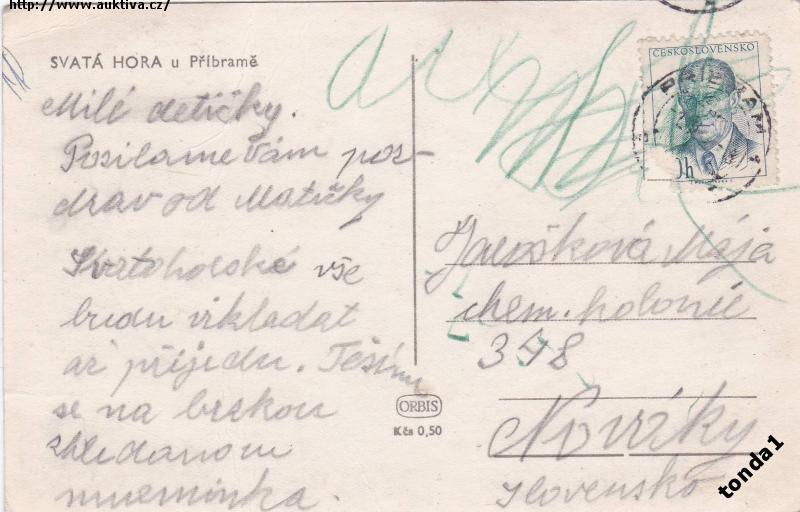 http://www.auktiva.cz/
SVATÁ HORA u Příbramě
Milé detičky.
Posilame Vám poz-
drav od Matičky
Svatohorské vše
budu vikladat
až přijedu. Těšíme
se na brzkou
shledanom
mueminka.
ČESKOSLOVENSKO
PŘÍBRAM
Mája
chem. kolonie
398
Nováky
Slovensko
ORBIS
Kčs 0,50
tonda1